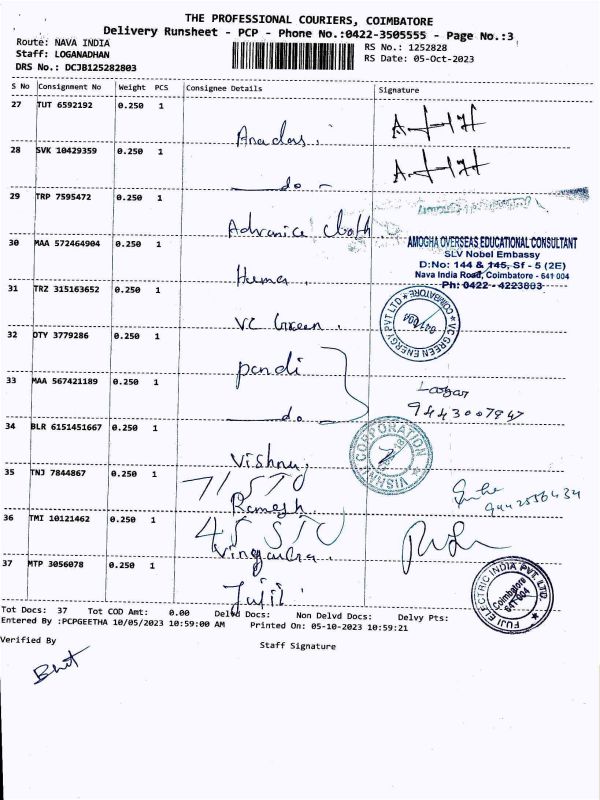 THE PROFESSIONAL COURIERS, COIMBATORE
Delivery Runsheet - PCP - Phone No.:0422-3505555 - Page No.:3
Route: NAVA INDIA
Staff: LOGANADHAN
DRS No.: DCJB125282803
RS No.: 1252828
RS Date: 05-Oct-2023
S No Consignment No Weight PCS Consignee Details Signature
27 TUT 6592192 0.250 1
28 SVK 10429359 0.250 1
do -
29 TRP 7595472 0.250 1
Advance cloth
30 MAA 572464904 0.250 1
Huma
AMOGHA OVERSEAS EDUCATIONAL CONSULTANT
SLV Nobel Embassy
D:No: 144 & 145, Sf - 5 (2E)
Nava India Road, Coimbatore - 641 004
Ph: 0422 - 4223803
31 TRZ 315163652 0.250 1
VC Green.
VC GREEN ENERGY PVT LTD * COIMBATORE *
641 004
32 OTY 3779286 0.250 1
pandi
33 MAA 567421189 0.250 1
do
34 BLR 6151451667 0.250 1
Vishnu
VISHNU CORPORATION
35 TNJ 7844867 0.250 1
71 STD
Ramesh.
36 TMI 10121462 0.250 1
45 STD
37 MTP 3056078 0.250 1
Fujil
FUJI ELECTRIC INDIA PVT. LTD.
Coimbatore
641 004
Tot Docs: 37 Tot COD Amt: 0.00 Delvd Docs: Non Delvd Docs: Delvy Pts:
Entered By :PCPGEETHA 10/05/2023 10:59:00 AM Printed On: 05-10-2023 10:59:21
Verified By
Staff Signature